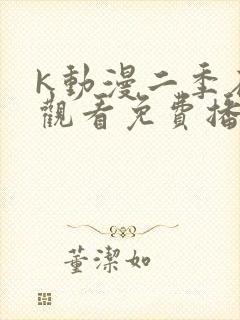 K動漫二季
觀看免費播
董潔如